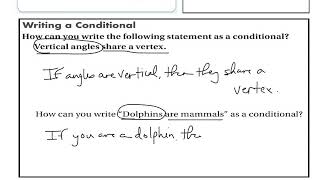 Writing a Conditional
How can you write the following statement as a conditional?
Vertical angles share a vertex.
If angles are vertical, then they share a
vertex.
How can you write "Dolphins are mammals" as a conditional?
If you are a dolphin, the